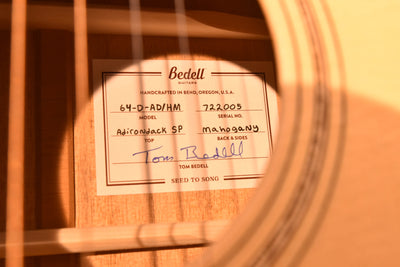 Bedell
GUITARS
HANDCRAFTED IN BEND, OREGON, U.S.A.
64-D-AD/HM 722005
MODEL SERIAL NO.
Adirondack SP mahogany
TOP BACK & SIDES
Tom Bedell
TOM BEDELL
SEED TO SONG